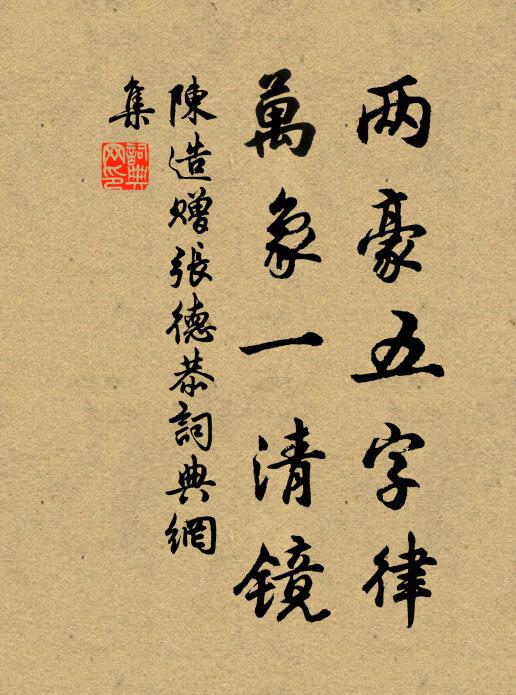 两豪五字律
萬象一清镜
陳造赠張德恭詞典網
集
詞典
网印